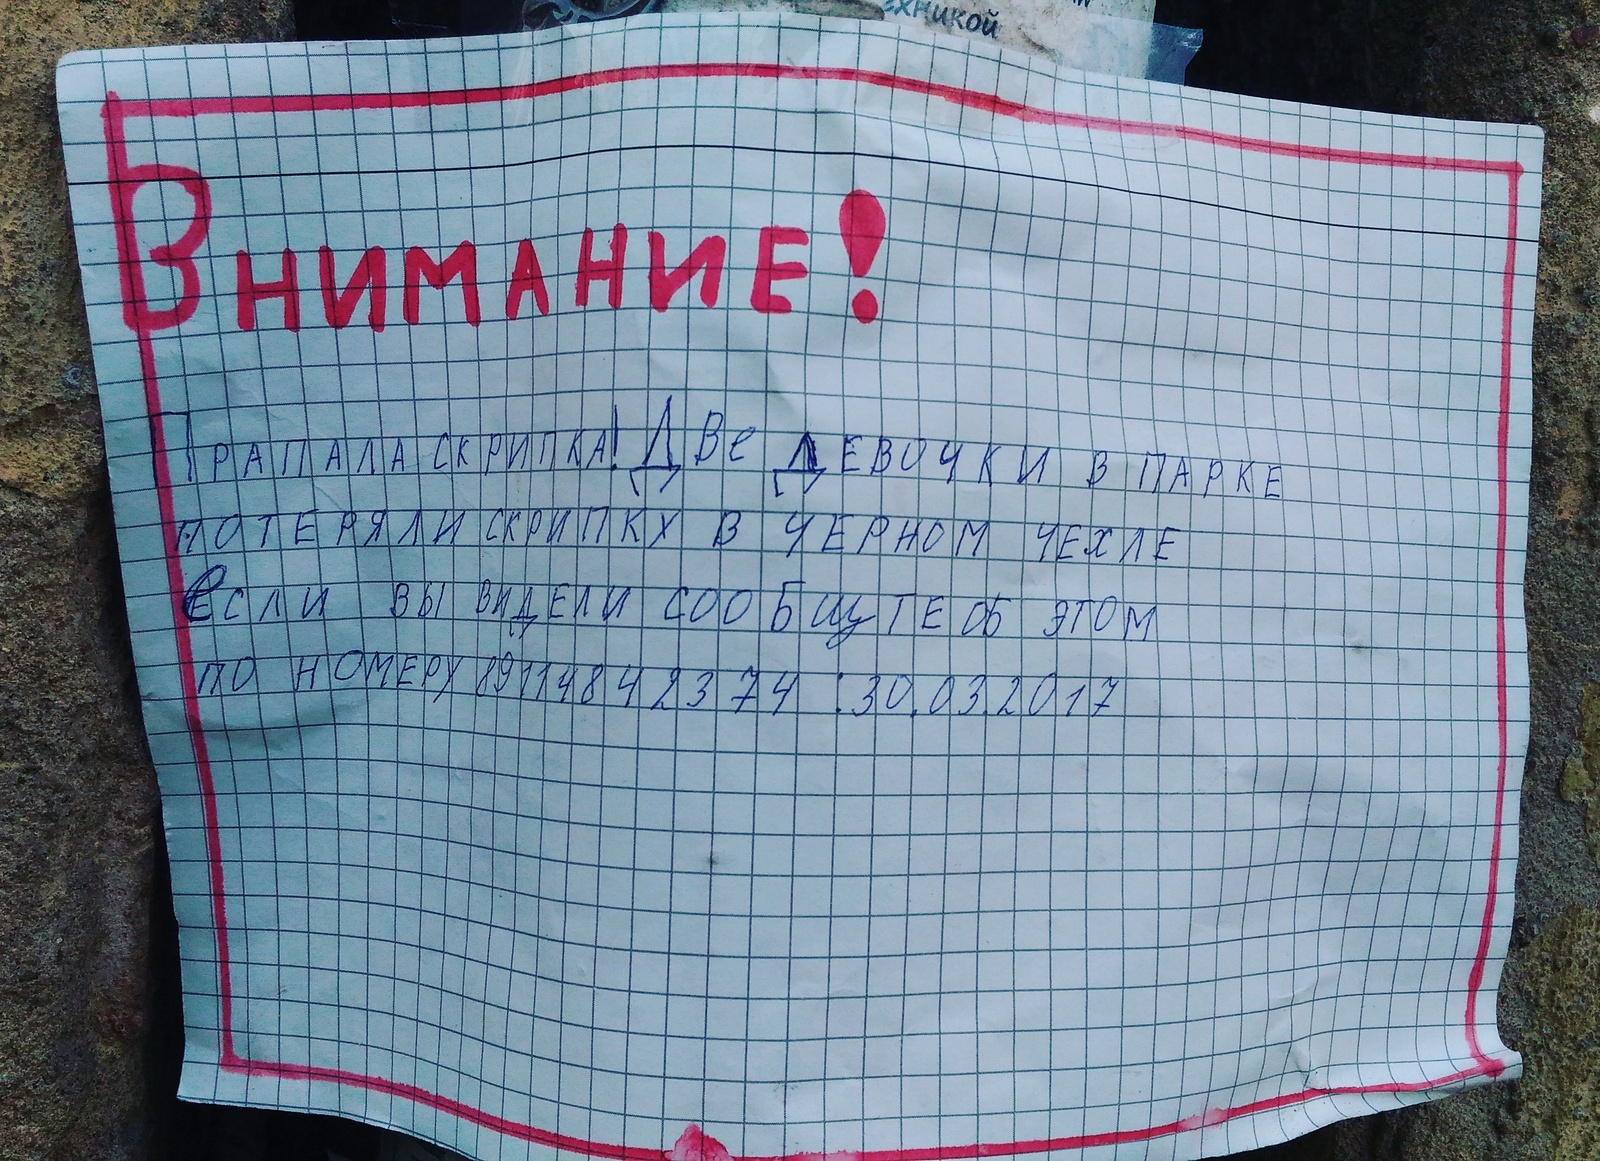 ехникой
Внимание!
Прапала скрипка! Две девочки в парке
потеряли скрипку в черном чехле
Если вы видели сообщите об этом
по номеру 89114842374 :30.03.2017